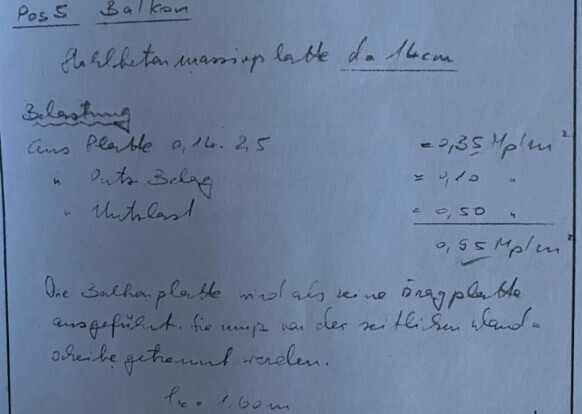 Pos 5 Balkon
Stahlbetonmassivplatte d = 14 cm
Belastung
aus Platte 0,14 · 2,5 = 0,35 Mp/m²
" Putz Belag = 0,10 "
" Nutzlast = 0,50 "
0,95 Mp/m²
Die Balkonplatte wird als reine Kragplatte
ausgeführt. Sie muß von der seitlichen Wand=
scheibe getrennt werden.
lk = 1.60 m